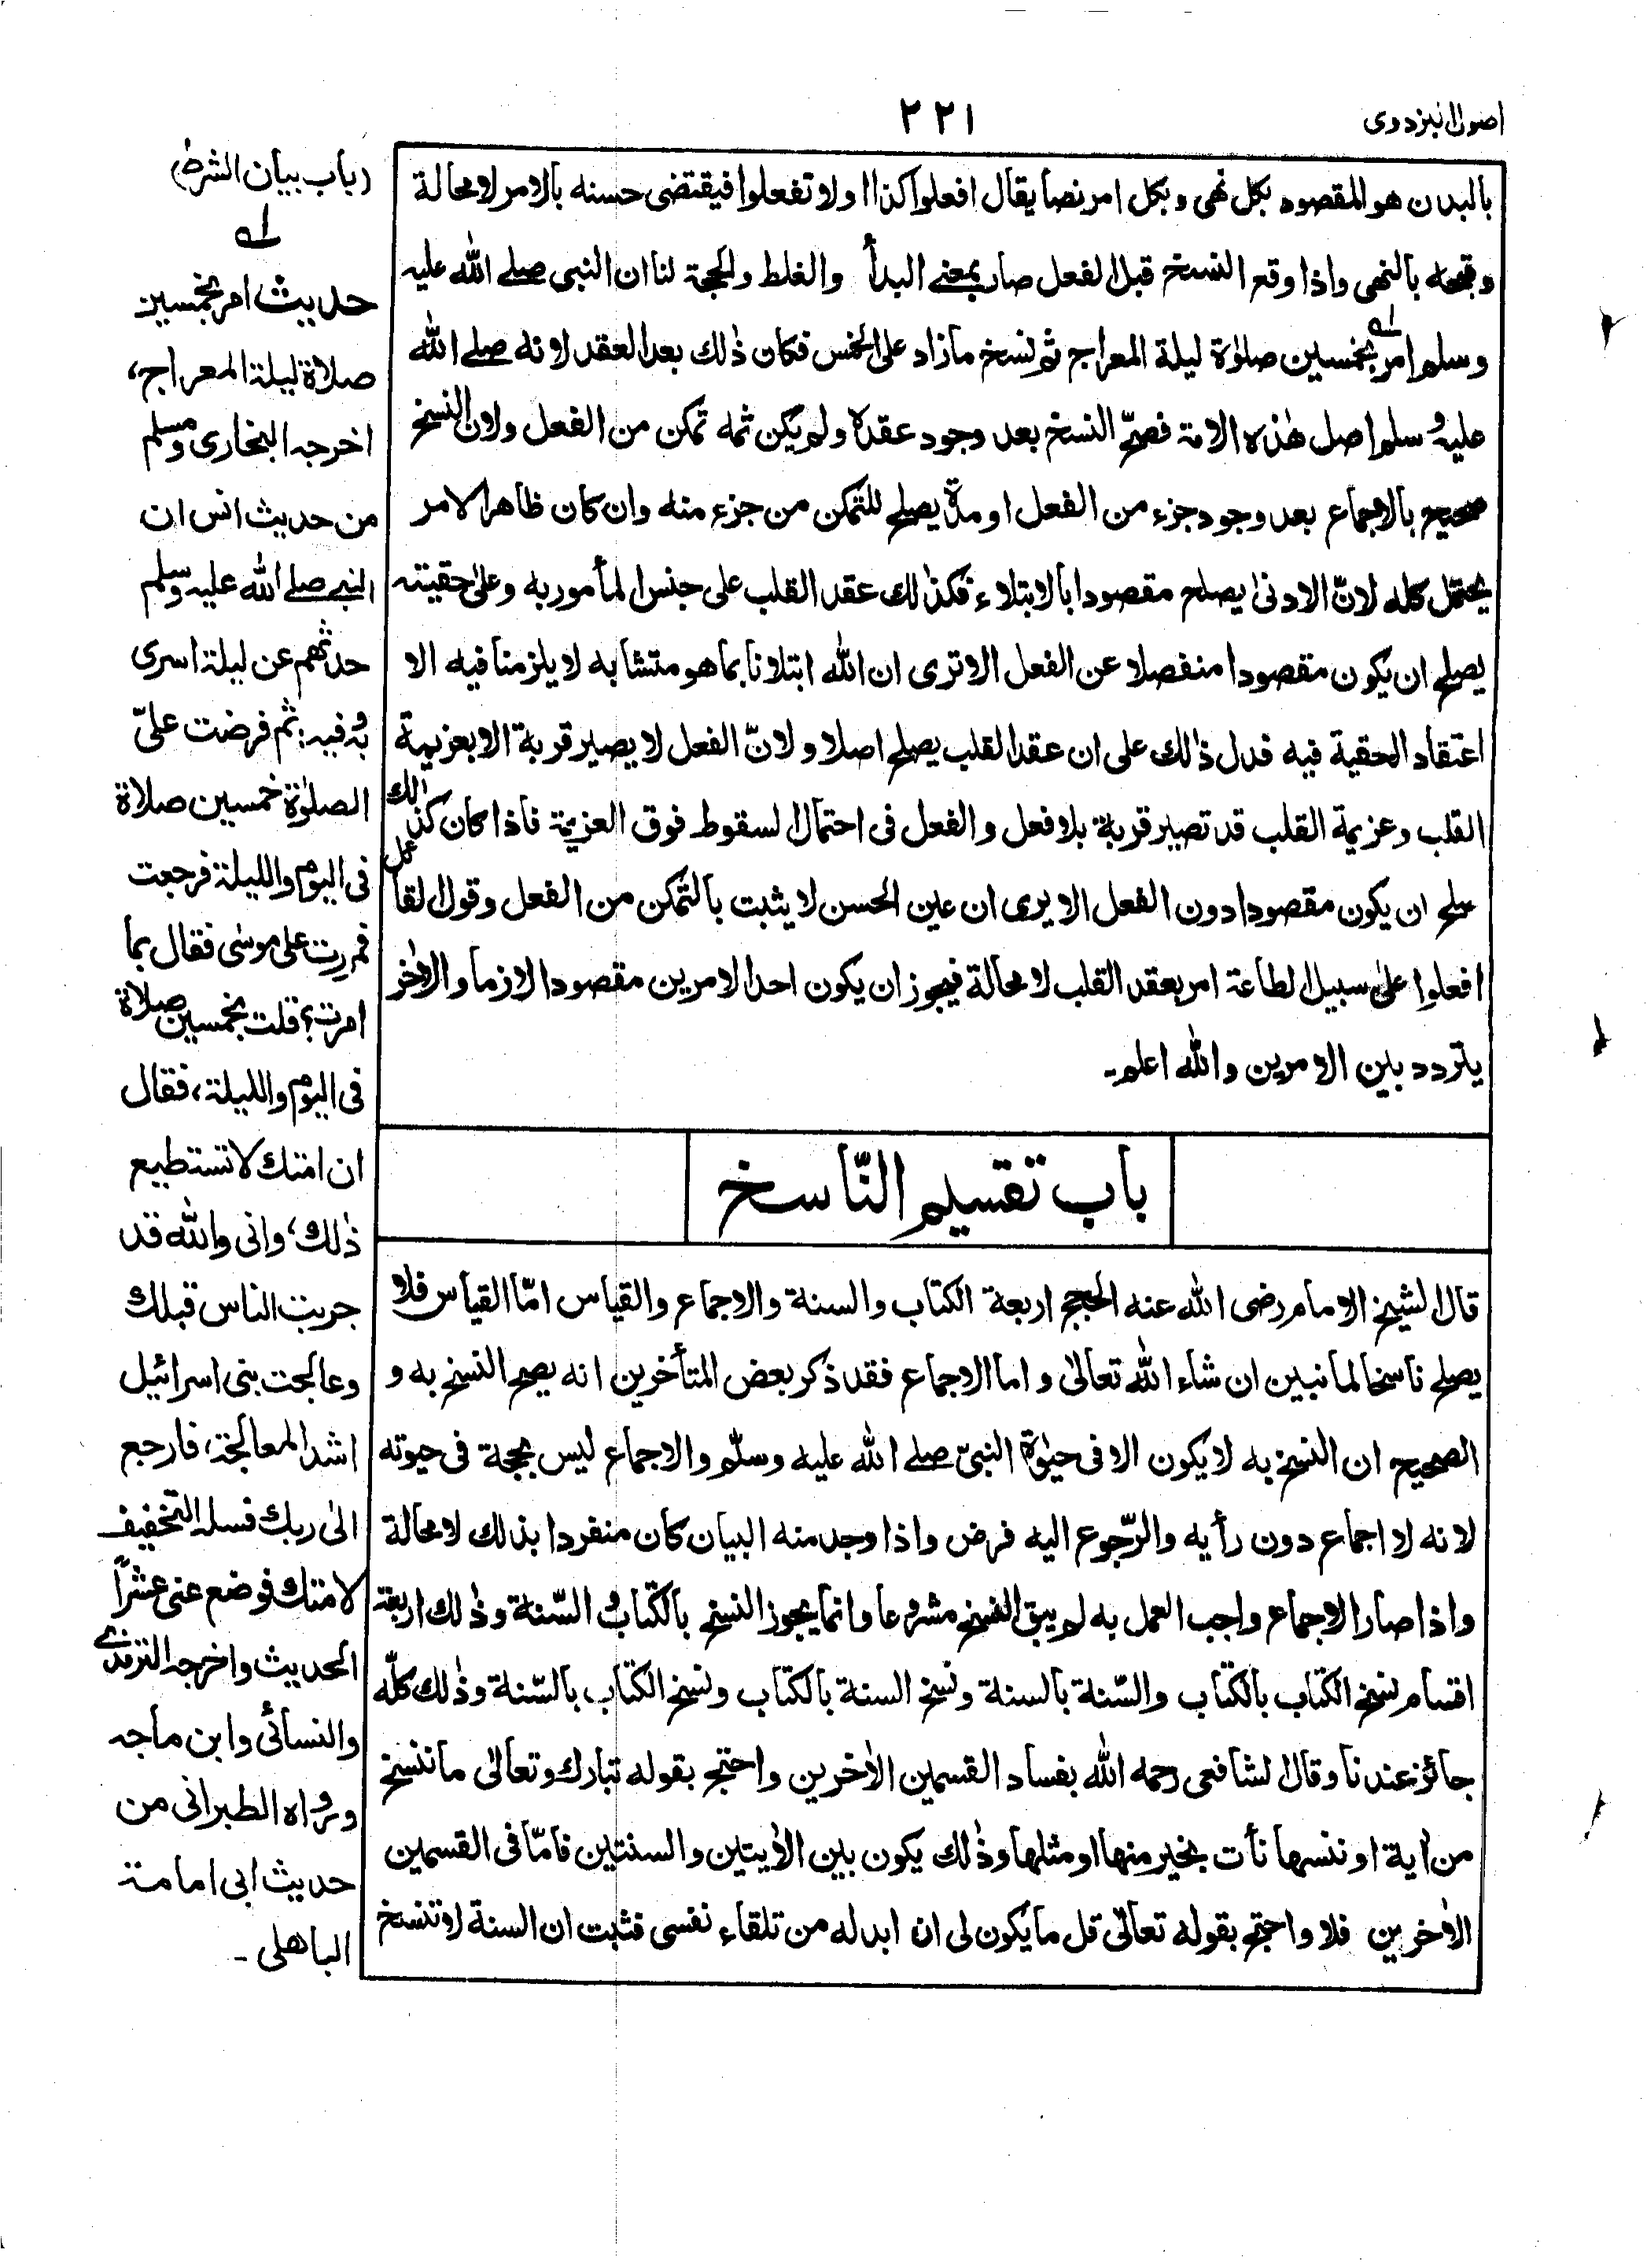 اصول البزدوى
٢٢١
بالبدن هو المقصود بكل نهى وبكل امر نصا يقال افعلوا كذا اولا تفعلوا فيقتضى حسنه بالامر لا محالة
وقبحه بالنهى واذا وقع النسخ قبل الفعل صار بمعنى البدأ والغلط والحجة لنا ان النبى صلے الله عليه
وسلم امر بخمسين صلوٰة ليلة المعراج ثم نسخ مازاد على الخمس فكان ذٰلك بعد العقد لانه صلے الله
عليه وسلم اصل هٰذه الامة فصحّ النسخ بعد وجود عقده ولم يكن ثمه تمكن من الفعل ولان النسخ
صحيح بالاجماع بعد وجود جزء من الفعل او مدّة يصلح للتمكن من جزء منه وان كان ظاهر الامر
يحتمل كله لانّ الادنىٰ يصلح مقصودا بالابتلاء فكذٰلك عقد القلب على جنس المأمور به وعلىٰ حقيته
يصلح ان يكون مقصودا منفصلا عن الفعل الا ترى ان الله ابتلانا بما هو متشابه لا يلزمنا فيه الا
اعتقاد الحقية فيه فدل ذٰلك على ان عقد القلب يصلح اصلا ولانّ الفعل لا يصير قربة الا بعزيمة
القلب وعزيمة القلب قد تصير قربة بلا فعل والفعل فى احتمال السقوط فوق العزيمة فاذا كان كذٰلك
صلح ان يكون مقصودا دون الفعل الا يرى ان عين الحسن لا يثبت بالتمكن من الفعل وقول القائل
افعلوا علىٰ سبيل الطاعة امر بعقد القلب لا محالة فيجوز ان يكون احد الامرين مقصودا لازما والاٰخر
يتردد بين الامرين والله اعلم۔
باب تقسيم النّاسخ
قال الشيخ الامام رضى الله عنه الحجج اربعة الكتاب والسنة والاجماع والقياس امّا القياس فلا
يصلح ناسخا لما نبين ان شاء الله تعالىٰ واما الاجماع فقد ذكر بعض المتأخرين انه يصح النسخ به و
الصحيح ان النسخ به لا يكون الا فى حيوٰة النبىّ صلے الله عليه وسلّم والاجماع ليس بحجة فى حيوته
لانه لا اجماع دون رأيه والرّجوع اليه فرض واذا وجد منه البيان كان منفردا بذلك لا محالة
واذا صار الاجماع واجب العمل به لم يبق النسخ مشروعا وانما يجوز النسخ بالكتاب والسّنة وذٰلك اربعة
اقسام نسخ الكتاب بالكتاب والسّنة بالسنة ونسخ السنة بالكتاب ونسخ الكتاب بالسّنة وذٰلك كلّه
جائز عندنا وقال الشافعى رحمه الله بفساد القسمين الاٰخرين واحتج بقوله تبارك وتعالىٰ ما ننسخ
من اٰية او ننسها نأت بخير منها او مثلها وذٰلك يكون بين الاٰيتين والسنتين فامّا فى القسمين
الاٰخرين فلا واحتج بقوله تعالىٰ قل ما يكون لى ان ابدله من تلقاء نفسى فثبت ان السنة لا تنسخ
(باب بيان الشرط)
لـه
حديث امر بخمسين
صلاة ليلة المعراج،
اخرجه البخارى ومسلم
من حديث انس ان
النبے صلے الله عليه وسلم
حدثهم عن ليلة اسرى
به وفيه: ثم فرضت علىّ
الصلوٰة خمسين صلاة
فى اليوم والليلة فرجعت
فمررت على موسى فقال بما
امرت؟ قلت بخمسين صلاة
فى اليوم والليلة، فقال
ان امتك لا تستطيع
ذٰلك، وانى والله قد
جربت الناس قبلك
وعالجت بنى اسرائيل
اشد المعالجة، فارجع
الىٰ ربك فسله التخفيف
لامتك فوضع عنى عشراً
الحديث واخرجه الترمذى
والنسائى وابن ماجه
ورواه الطبرانى من
حديث ابى امامة
الباهلى۔